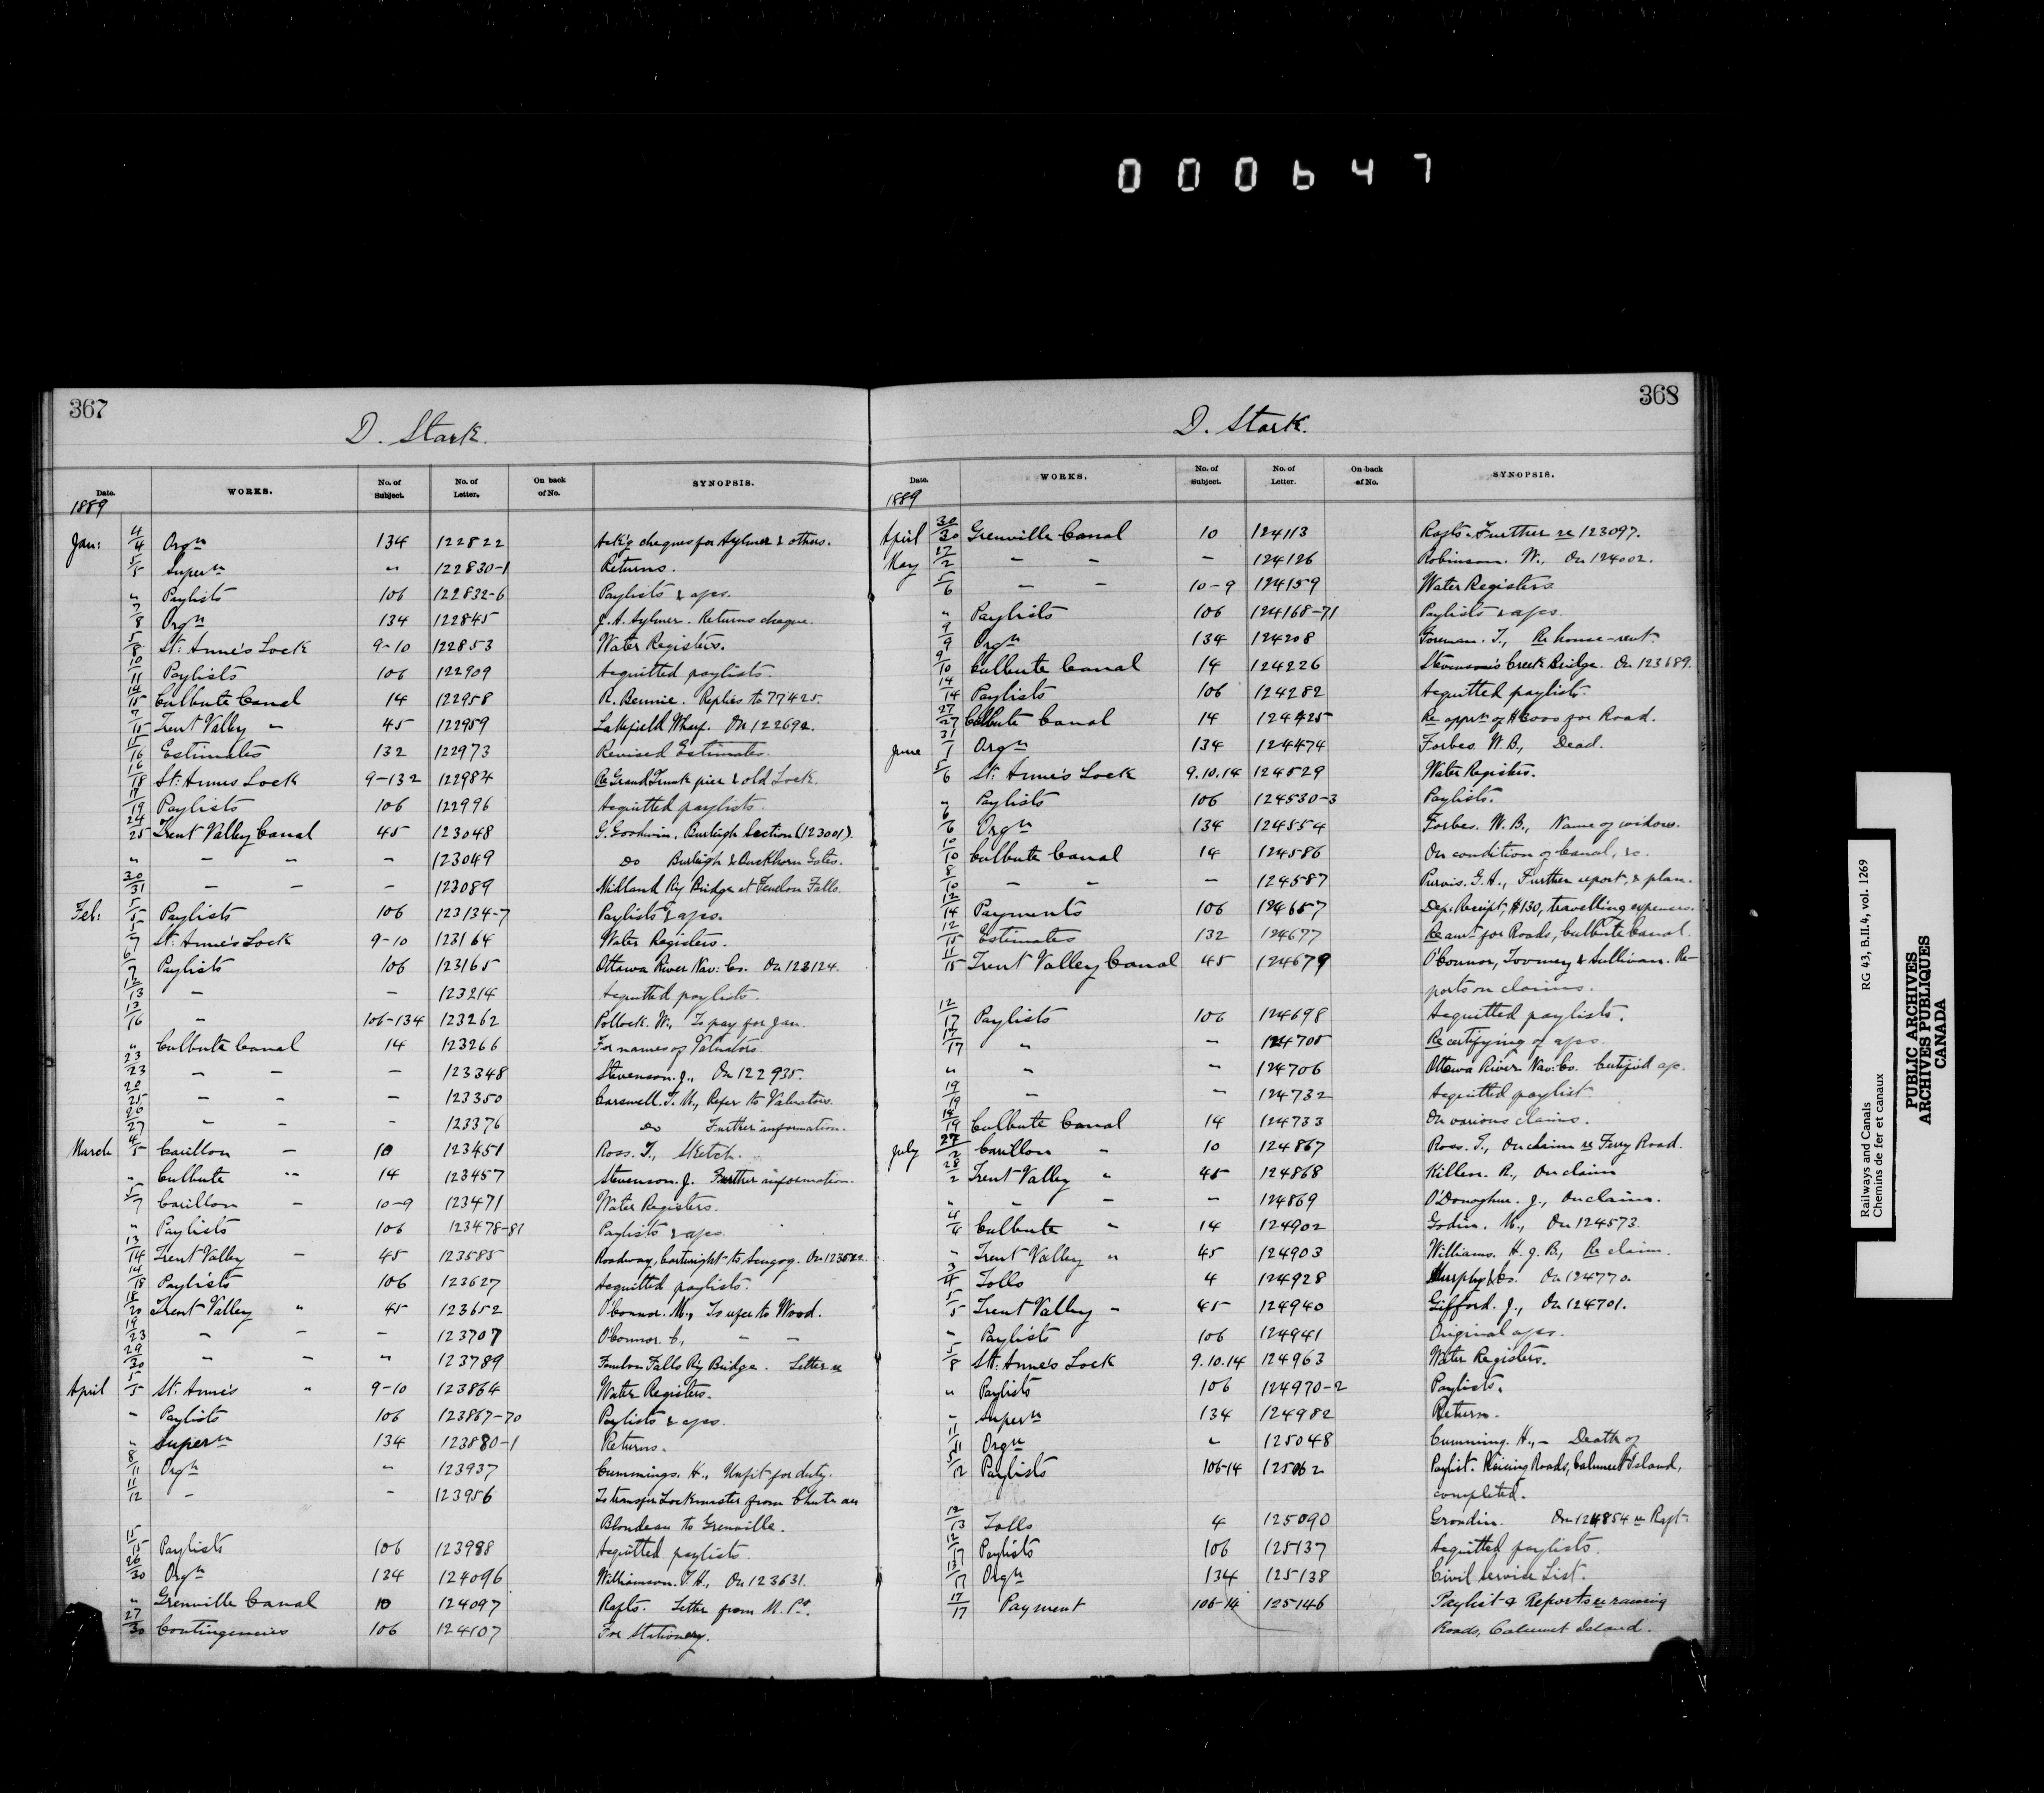 000647
367
D. Stark.
Date. WORKS. No. of Subject. No. of Letter. On back of No. SYNOPSIS.
1889
Jan: 4/4 Orgn 134 122822 Ack'g cheques for Aylmer & others.
5/5 Supern " 122830-1 Returns.
" Paylists 106 122832-6 Paylists & aps.
7/8 Orgn 134 122845 J. A. Aylmer. Returns cheque.
5/8 St. Anne's Lock 9-10 122853 Water Registers.
10/11 Paylists 106 122909 Acquitted paylists.
14/15 Culbute Canal 14 122958 R. Bennie. Replies to 77425.
7/15 Trent Valley " 45 122959 Lakefield Wharf. On 122692.
15/16 Estimates 132 122973 Revised Estimates.
16/18 St. Annes Lock 9-132 122984 Re Grand Trunk pier & old Lock.
17/19 Paylists 106 122996 Acquitted paylists.
24/25 Trent Valley Canal 45 123048 G. Goodwin. Burleigh Section (123001).
" - - - 123049 do Burleigh & Buckhorn Gates.
30/31 - - - 123089 Midland Ry Bridge at Fenelon Falls.
Feb: 5/5 Paylists 106 123134-7 Paylists & aps.
5/7 St. Anne's Lock 9-10 123164 Water Registers.
6/7 Paylists 106 123165 Ottawa River Nav: Co. On 123124.
12/13 - - 123214 Acquitted paylists.
13/16 " 106-134 123262 Pollock. W., To pay for Jan.
" Culbute Canal 14 123266 For names of Valuators.
23/23 - - - 123348 Stevenson. J., On 122935.
20/25 - - - 123350 Carswell. T. W., Refer to Valuators.
26/27 - - - 123376 do Further information.
March 4/5 Carillon - 10 123451 Ross. T., Sketch.
" Culbute " 14 123457 Stevenson. J. Further information.
5/7 Carillon - 10-9 123471 Water Registers.
" Paylists 106 123478-81 Paylists & aps.
13/14 Trent Valley - 45 123585 Roadway, Cartwright to Scugog. On 123522.
14/18 Paylists 106 123627 Acquitted paylists.
18/20 Trent Valley " 45 123652 O'Connor. M., To refer to Wood.
19/23 - - - 123707 O'Connor. C., - -
29/30 " - " 123789 Fenelon Falls Ry Bridge. Letter re
April 5/5 St. Anne's " 9-10 123864 Water Registers.
- Paylists 106 123867-70 Paylists & aps.
" Supern 134 123880-1 Returns.
8/11 Orgn " 123937 Cummings. H., Unfit for duty.
11/12 - - 123956 To transfer Lockmaster from Chute au
Blondeau to Grenville.
15/15 Paylists 106 123988 Acquitted paylists.
26/30 Orgn 134 124096 Williamson. T. H., On 123631.
" Grenville Canal 10 124097 Rafts. Letter from M. P.
27/30 Contingencies 106 124107 For Stationery.
368
D. Stark.
Date. WORKS. No. of Subject. No. of Letter. On back of No. SYNOPSIS.
1889
April 30/30 Grenville Canal 10 124113 Rafts. Further re 123097.
May 27/2 - - - 124126 Robinson. W., On 124002.
5/6 - - 10-9 124159 Water Registers
" Paylists 106 124168-71 Paylists & aps.
9/9 Orgn 134 124208 Foreman. T., Re house-rent.
9/10 Culbute Canal 14 124226 Stevenson's Creek Bridge. On 123689.
14/14 Paylists 106 124282 Acquitted paylists.
27/27 Culbute Canal 14 124425 Re apprn of $3000 for Road.
June 31/1 Orgn 134 124474 Forbes. W. B., Dead.
5/6 St. Anne's Lock 9.10.14 124529 Water Registers.
" Paylists 106 124530-3 Paylists.
6/6 Orgn 134 124554 Forbes. W. B., Name of widow.
10/10 Culbute Canal 14 124586 On condition of Canal, &c.
8/10 - - - 124587 Purvis. G. A., Further report, & plan.
12/14 Payments 106 124657 Dep. Receipt, $130, travelling expenses.
12/15 Estimates 132 124677 Re amt for Roads, Culbute Canal.
11/15 Trent Valley Canal 45 124679 O'Connor, Toomey & Sullivan. Re-
ports on claims.
12/17 Paylists 106 124698 Acquitted paylists.
17/17 " - 124705 Re certifying of aps.
" " - 124706 Ottawa River Nav: Co. Certified ap.
19/19 - - 124732 Acquitted paylist.
18/19 Culbute Canal 14 124733 On various claims.
July 27/2 Carillon - 10 124867 Ross. T., On claim re Ferry Road.
28/2 Trent Valley " 45 124868 Killen. R., On claim
" - - - 124869 O'Donoghue. J., On claim.
4/4 Culbute " 14 124902 Godin. M., On 124573.
" Trent Valley " 45 124903 Williams. H. J. B., Re claim.
3/4 Tolls 4 124928 Murphy & Co. On 124770.
5/5 Trent Valley - 45 124940 Gifford. J., On 124701.
" Paylists 106 124941 Original aps.
5/8 St. Anne's Lock 9.10.14 124963 Water Registers.
" Paylists 106 124970-2 Paylists.
" Supern 134 124982 Return.
11/11 Orgn " 125048 Cumming. H., - Death of
5/12 Paylists 106-14 125062 Paylist. Raising Roads, Calumet Island,
completed.
12/13 Tolls 4 125090 Grondin. On 124854 re Raft.
12/17 Paylists 106 125137 Acquitted paylists.
13/17 Orgn 134 125138 Civil Service List.
17/17 Payment 106-14 125146 Paylist & Reports re raising
Roads, Calumet Island.
Railways and Canals RG 43, B.II.4, vol. 1269
Chemins de fer et canaux
PUBLIC ARCHIVES
ARCHIVES PUBLIQUES
CANADA